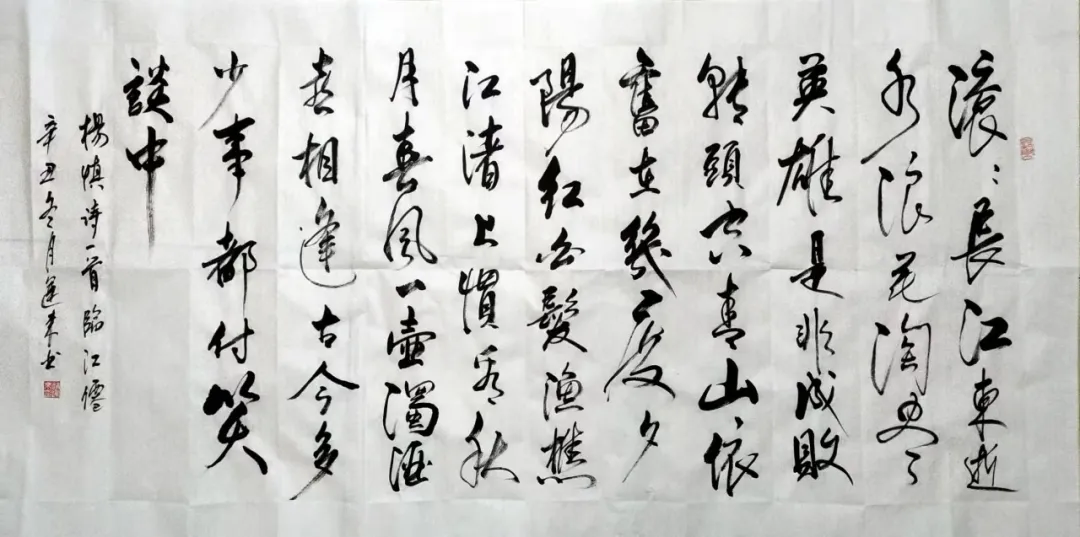 滚〻長江東逝
水浪花淘尽
英雄是非成敗
轉頭空青山依
舊在幾度夕
陽紅白髮漁樵
江渚上慣看秋
月春風一壷濁酒
喜相逢古今多
少事都付笑
談中
楊慎诗一首臨江僊
辛丑冬月 书